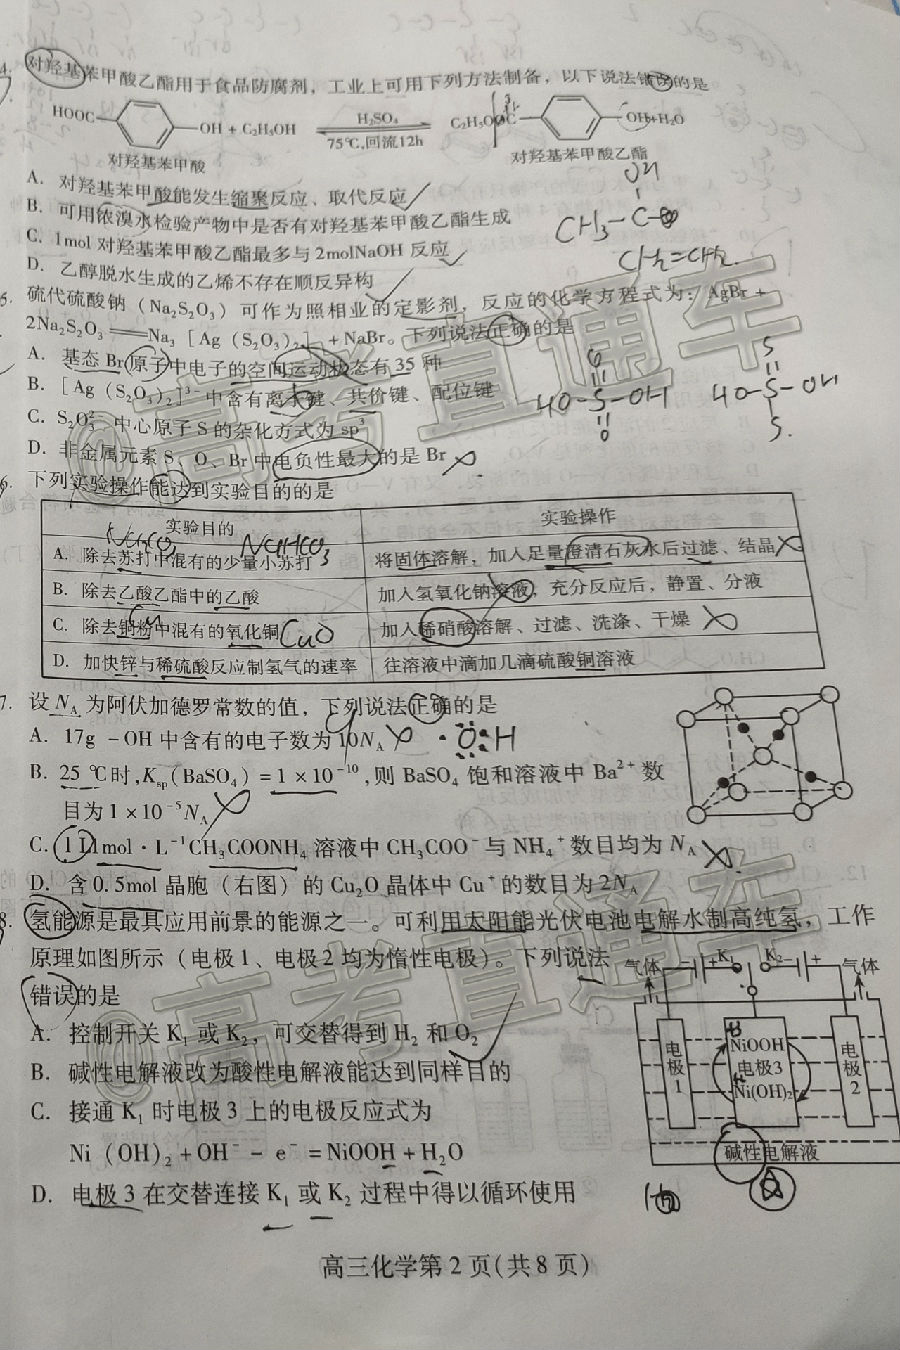 4. 对羟基苯甲酸乙酯用于食品防腐剂，工业上可用下列方法制备，以下说法错误的是
HOOC OH + C₂H₅OH H₂SO₄ 75℃,回流12h C₂H₅OOC OH+H₂O
对羟基苯甲酸 对羟基苯甲酸乙酯
A. 对羟基苯甲酸能发生缩聚反应、取代反应
OH
B. 可用浓溴水检验产物中是否有对羟基苯甲酸乙酯生成
CH₃-C
C. 1mol 对羟基苯甲酸乙酯最多与 2molNaOH 反应
CH₂=CH₂
D. 乙醇脱水生成的乙烯不存在顺反异构
5. 硫代硫酸钠（Na₂S₂O₃）可作为照相业的定影剂，反应的化学方程式为：AgBr +
2Na₂S₂O₃ ═══ Na₃［Ag（S₂O₃）₂］+ NaBr。下列说法正确的是
A. 基态 Br 原子中电子的空间运动状态有 35 种
B.［Ag（S₂O₃）₂］³⁻ 中含有离子键、共价键、配位键
C. S₂O₃²⁻ 中心原子 S 的杂化方式为 sp³
D. 非金属元素 S、O、Br 中电负性最大的是 Br
O
HO-S-OH
O
S
HO-S-OH
S
6. 下列实验操作能达到实验目的的是
实验目的 实验操作
NaHCO₃
A. 除去苏打中混有的少量小苏打 将固体溶解，加入足量澄清石灰水后过滤、结晶
B. 除去乙酸乙酯中的乙酸 加入氢氧化钠溶液，充分反应后，静置、分液
Cu
C. 除去铜粉中混有的氧化铜 CuO 加入稀硝酸溶解、过滤、洗涤、干燥
D. 加快锌与稀硫酸反应制氢气的速率 往溶液中滴加几滴硫酸铜溶液
7. 设 N_A 为阿伏加德罗常数的值，下列说法正确的是
9
A. 17g －OH 中含有的电子数为 10N_A ·O:H
B. 25 ℃时,K_sp(BaSO₄) = 1 × 10⁻¹⁰,则 BaSO₄ 饱和溶液中 Ba²⁺ 数
目为 1 × 10⁻⁵N_A
C. 1 L1mol · L⁻¹CH₃COONH₄ 溶液中 CH₃COO⁻ 与 NH₄⁺ 数目均为 N_A
D. 含 0.5mol 晶胞（右图）的 Cu₂O 晶体中 Cu⁺ 的数目为 2N_A
8. 氢能源是最具应用前景的能源之一。可利用太阳能光伏电池电解水制高纯氢，工作
原理如图所示（电极 1、电极 2 均为惰性电极）。下列说法
错误的是
A. 控制开关 K₁ 或 K₂，可交替得到 H₂ 和 O₂
B. 碱性电解液改为酸性电解液能达到同样目的
C. 接通 K₁ 时电极 3 上的电极反应式为
Ni（OH）₂ + OH⁻ － e⁻ = NiOOH + H₂O
D. 电极 3 在交替连接 K₁ 或 K₂ 过程中得以循环使用
气体 + K₁ K₂ + 气体
电极1
NiOOH
电极3
Ni(OH)₂
电极2
碱性电解液
高三化学第 2 页(共 8 页)
@高考直通车
@高考直通车